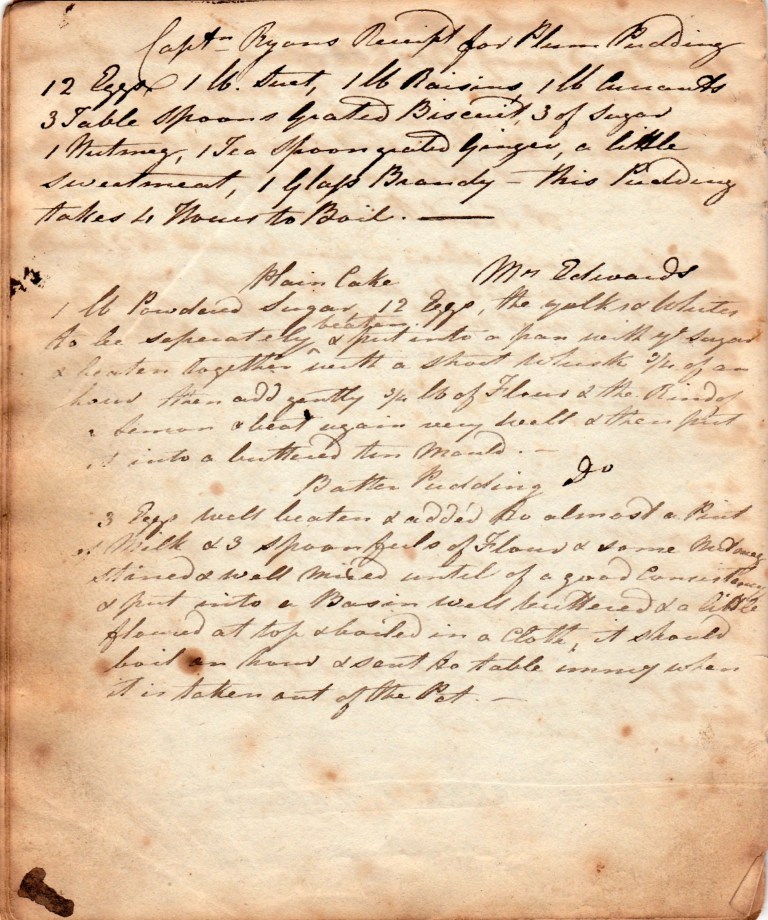 Captn Ryans Receipt for Plum Pudding
12 Eggs, 1 lb. Suet, 1 lb Raisins, 1 lb Currants
3 Table Spoons Grated Biscuit, 3 of Sugar
1 Nutmeg, 1 Tea Spoon grated Ginger, a little
sweetmeat, 1 Glass Brandy – this Pudding
takes 4 Hours to Boil. —
Plain Cake Mrs Edwards
1 lb Powdered Sugar, 12 Eggs, the yolks & Whites
beaten
to be seperately & put into a pan with ye sugar
& beaten together with a short Whisk 3/4 of an
hour then add gently 3/4 lb of Flour & the Rind of
a Lemon & beat again very well & then put
it into a buttered tin Mould. –
Batter Pudding Do
3 Eggs well beaten & added to almost a Pint
of Milk & 3 spoonfuls of Flour & some Nutmeg
stired & well mixed until of a good Consistency
& put into a Basin well buttered & a little
floured at top & boiled in a Cloth, it should
boil an hour & sent to table immy when
it is taken out of the Pot. –